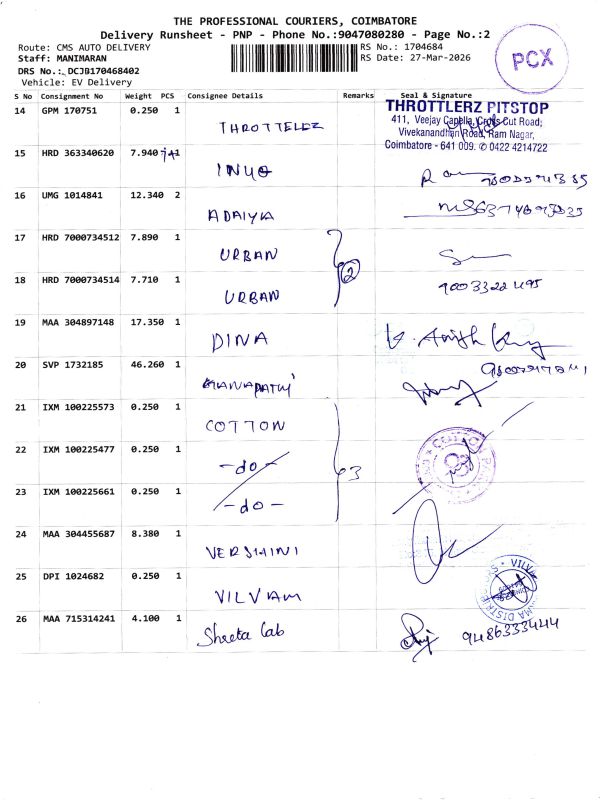 THE PROFESSIONAL COURIERS, COIMBATORE
Delivery Runsheet - PNP - Phone No.:9047080280 - Page No.:2
Route: CMS AUTO DELIVERY
Staff: MANIMARAN
DRS No.: DCJB170468402
Vehicle: EV Delivery
RS No.: 1704684
RS Date: 27-Mar-2026
PCX
S No Consignment No Weight PCS Consignee Details Remarks Seal & Signature
14 GPM 170751 0.250 1 THROTTELEZ
THROTTLERZ PITSTOP
411, Veejay Capella, Cross Cut Road;
Vivekanandhan Road, Ram Nagar,
Coimbatore - 641 009. ✆ 0422 4214722
15 HRD 363340620 7.940 1 INUO
16 UMG 1014841 12.340 2 ADAIYIA
17 HRD 7000734512 7.890 1 URBAN
2
18 HRD 7000734514 7.710 1 URBAN
9003322495
19 MAA 304897148 17.350 1 DINA
20 SVP 1732185 46.260 1
21 IXM 100225573 0.250 1 COTTON
22 IXM 100225477 0.250 1 -do-
3
23 IXM 100225661 0.250 1 -do-
24 MAA 304455687 8.380 1 VERSHINI
25 DPI 1024682 0.250 1 VILVIAM
26 MAA 715314241 4.100 1 Shreta Lab 9486333444